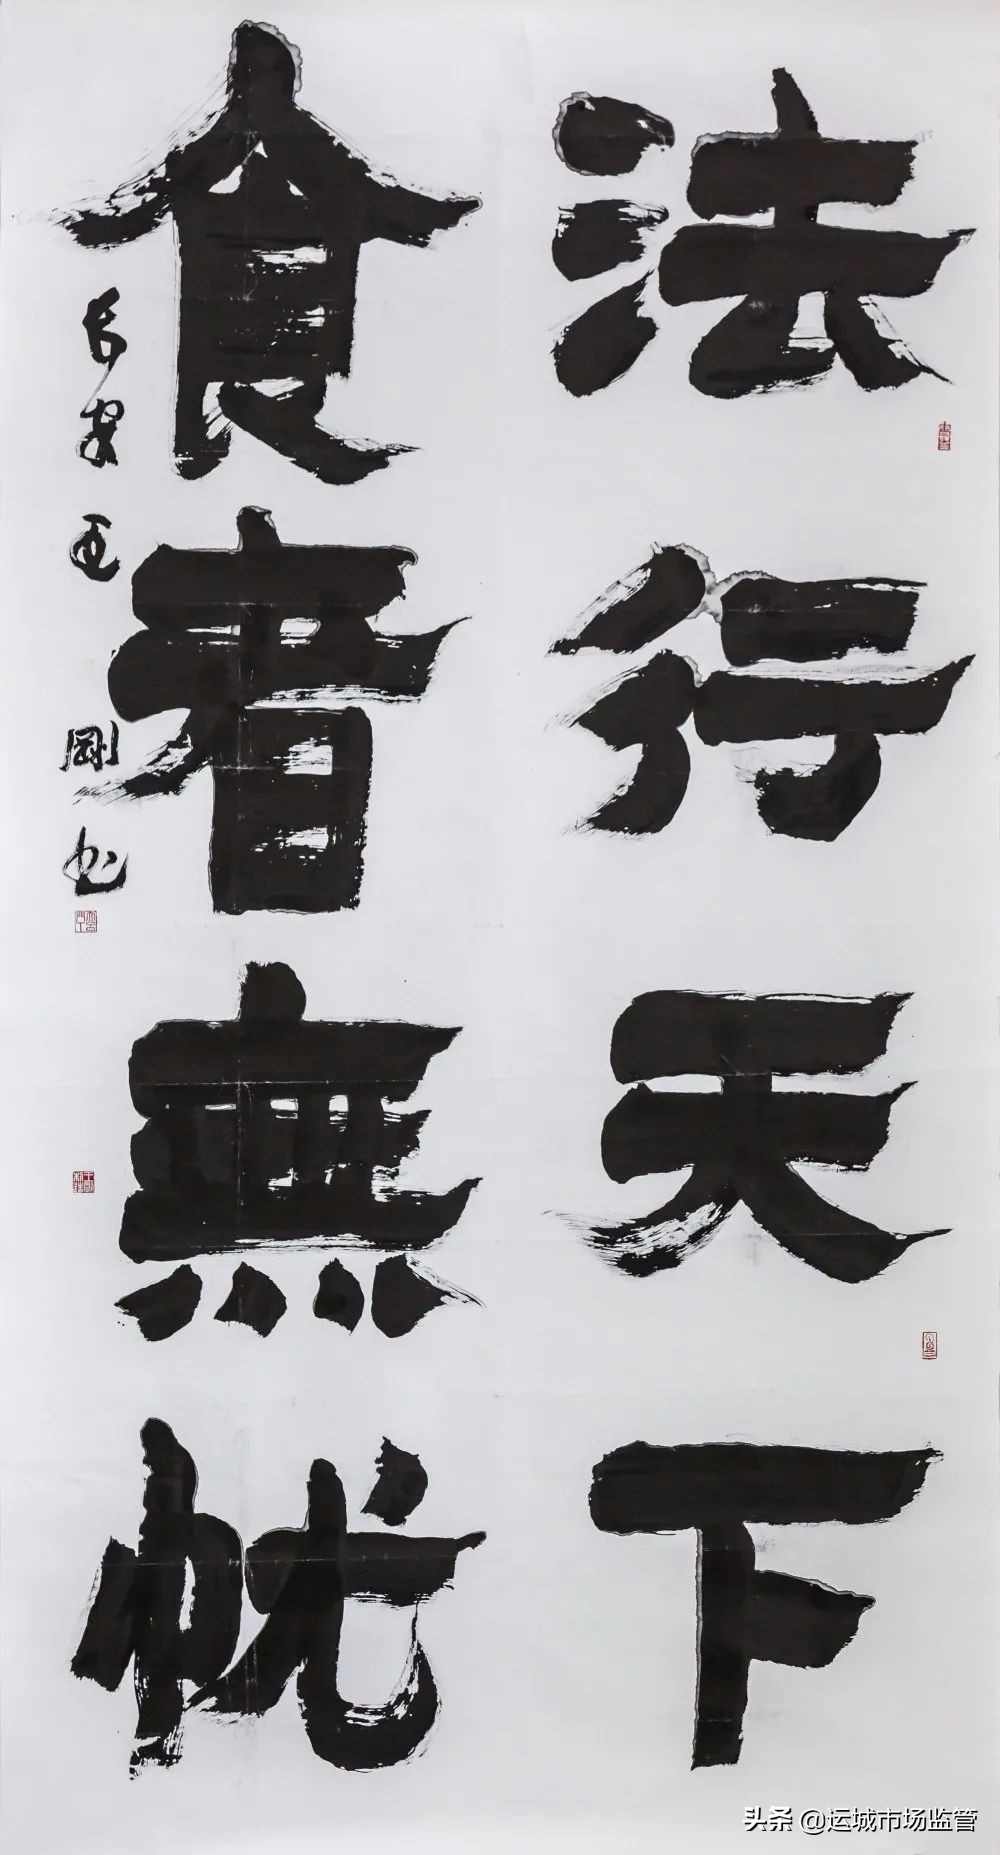 法行天下
食者無忧
长安王刚书
头条 @运城市场监管